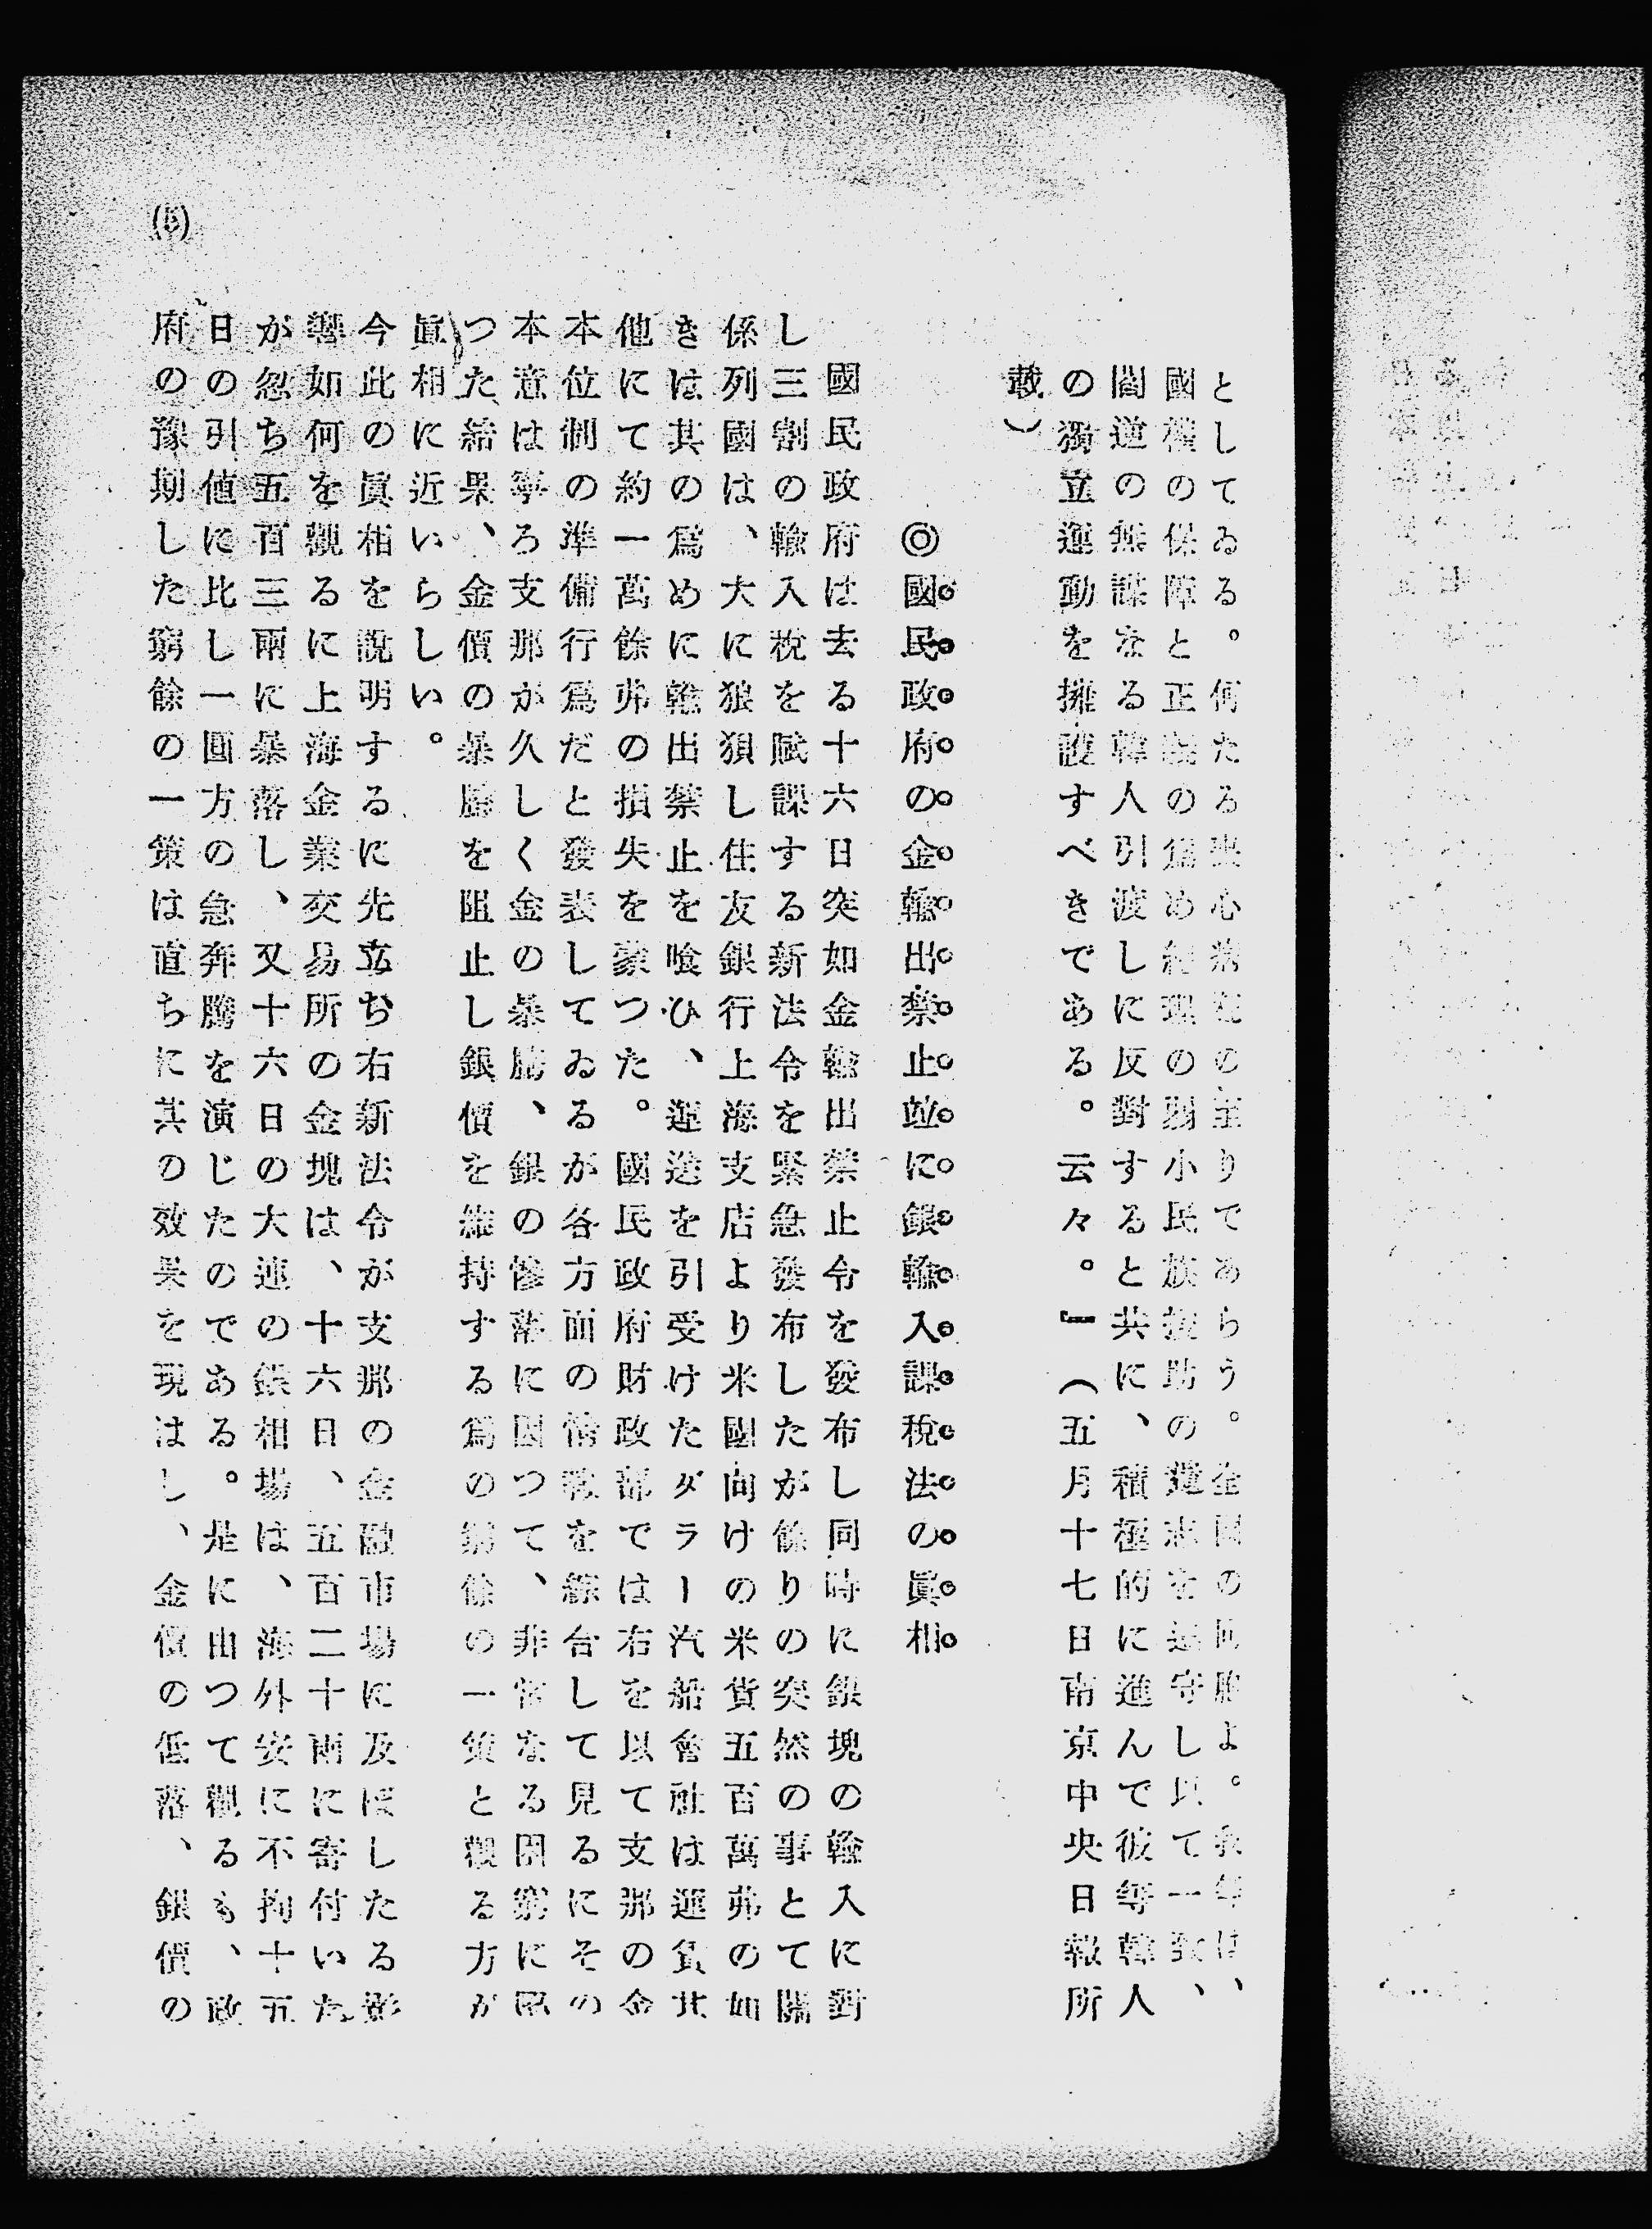 としてゐる。何たる喪心病狂の至りであらう。全國の同胞よ。我等は、
國權の保障と正義の爲め總理の弱小民族援助の遺志を遵守し以て一致、
閥道の無謀なる韓人引渡しに反對すると共に、積極的に進んで彼等韓人
の獨立運動を擁護すべきである。云々。』（五月十七日南京中央日報所
載）
◎國民政府の金輸出禁止竝に銀輸入課税法の眞相
國民政府は去る十六日突如金輸出禁止令を發布し同時に銀塊の輸入に對
し三割の輸入税を賦課する新法令を緊急發布したが餘りの突然の事とて關
係列國は、大に狼狽し住友銀行上海支店より米國向けの米貨五百萬弗の如
きは其の爲めに輸出禁止を喰ひ、運送を引受けたダラー汽船會社は運賃其
他にて約一萬餘弗の損失を蒙つた。國民政府財政部では右を以て支那の金
本位制の準備行爲だと發表してゐるが各方面の情報を綜合して見るにその
本意は寧ろ支那が久しく金の暴騰、銀の慘落に因つて、非常なる困窮に陷
つた結果、金價の暴騰を阻止し銀價を維持する爲の窮餘の一策と觀る方が
眞相に近いらしい。
今此の眞相を説明するに先立ち右新法令が支那の金融市場に及ぼしたる影
響如何を觀るに上海金業交易所の金塊は、十六日、五百二十兩に寄付いた
が忽ち五百三兩に暴落し、又十六日の大連の銀相場は、海外安に不拘十五
日の引値に比し一圓方の急奔騰を演じたのである。是に由つて觀るも、政
府の豫期した窮餘の一策は直ちに其の效果を現はし、金價の低落、銀價の